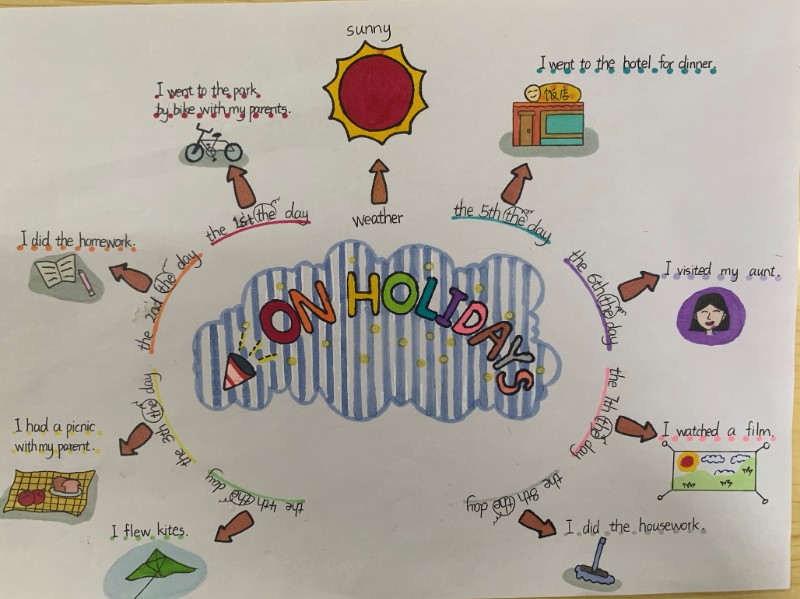 sunny
weather
ON HOLIDAYS
the 1st the day
I went to the park
by bike with my parents.
the 2nd the day
I did the homework.
the 3th the day
I had a picnic
with my parent.
the 4th the day
I flew kites.
the 5th the day
I went to the hotel for dinner.
饭店
the 6th the day
I visited my aunt.
the 7th the day
I watched a film.
the 8th the day
I did the housework.